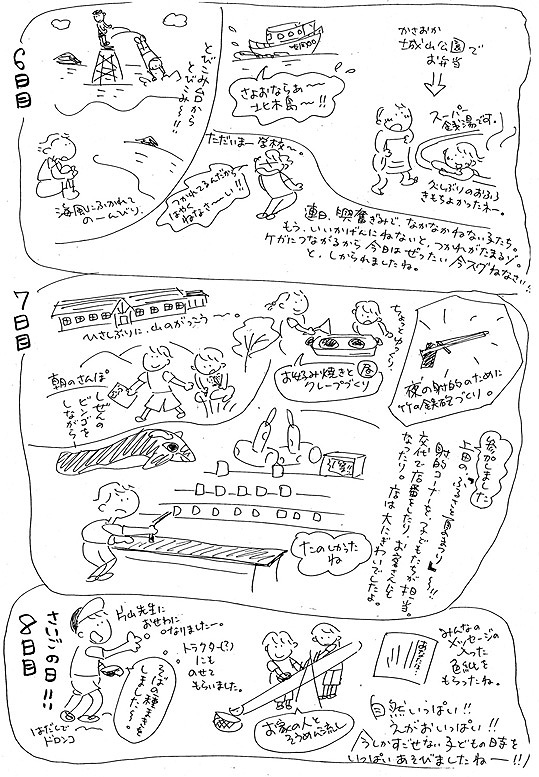 6日目
とびこみ台から
とびこみ〜!!
海風にふかれて
のーんびり。
さよおならあ〜
北木島〜!!
かさおか
城山公園で
お弁当
スーパー
銭湯です。
久しぶりのおふろ
きもちよかったネー。
ただいまー学校〜。
つかれてるんだから
はやく
ねなさーい!!
連日、興奮ぎみで、なかなかねない子たち。
もう、いいかげんにねないと、つかれがたまるゾ。
ケガにつながるから今日はぜったい今スグねなさい!!
と、しかられましたね。
7日目
ひさしぶりに、山のがっこう〜。
朝のさんぽ
しぜんの
ビンゴを
しながら
ちょっとゆっくり、
お好み焼きと昼
クレープづくり
夜の射的のために
竹の鉄砲づくり。
参加しました
上田のふるさと夏まつり〜!!
射的コーナーを、子どもたちが担当。
交代で店番をしたり、お客さんに
なったり。店は大にぎわいでしたよ。
たのしかった
ね
8日目
さいごの日!!
片山先生に
おせわに
なりましたー。
トラクター(?)
にも
のせて
もらいました。
そばの種まきを
しました〜。
はだしで
ドロンコ
お家の人と
そうめん流し
みんなの
メッセージの
入った
色紙を
もらったね。
自然いっぱい!!
えがおいっぱい!!
今しかすごせない子どもの日時を
いっぱいあそびましたねー!!